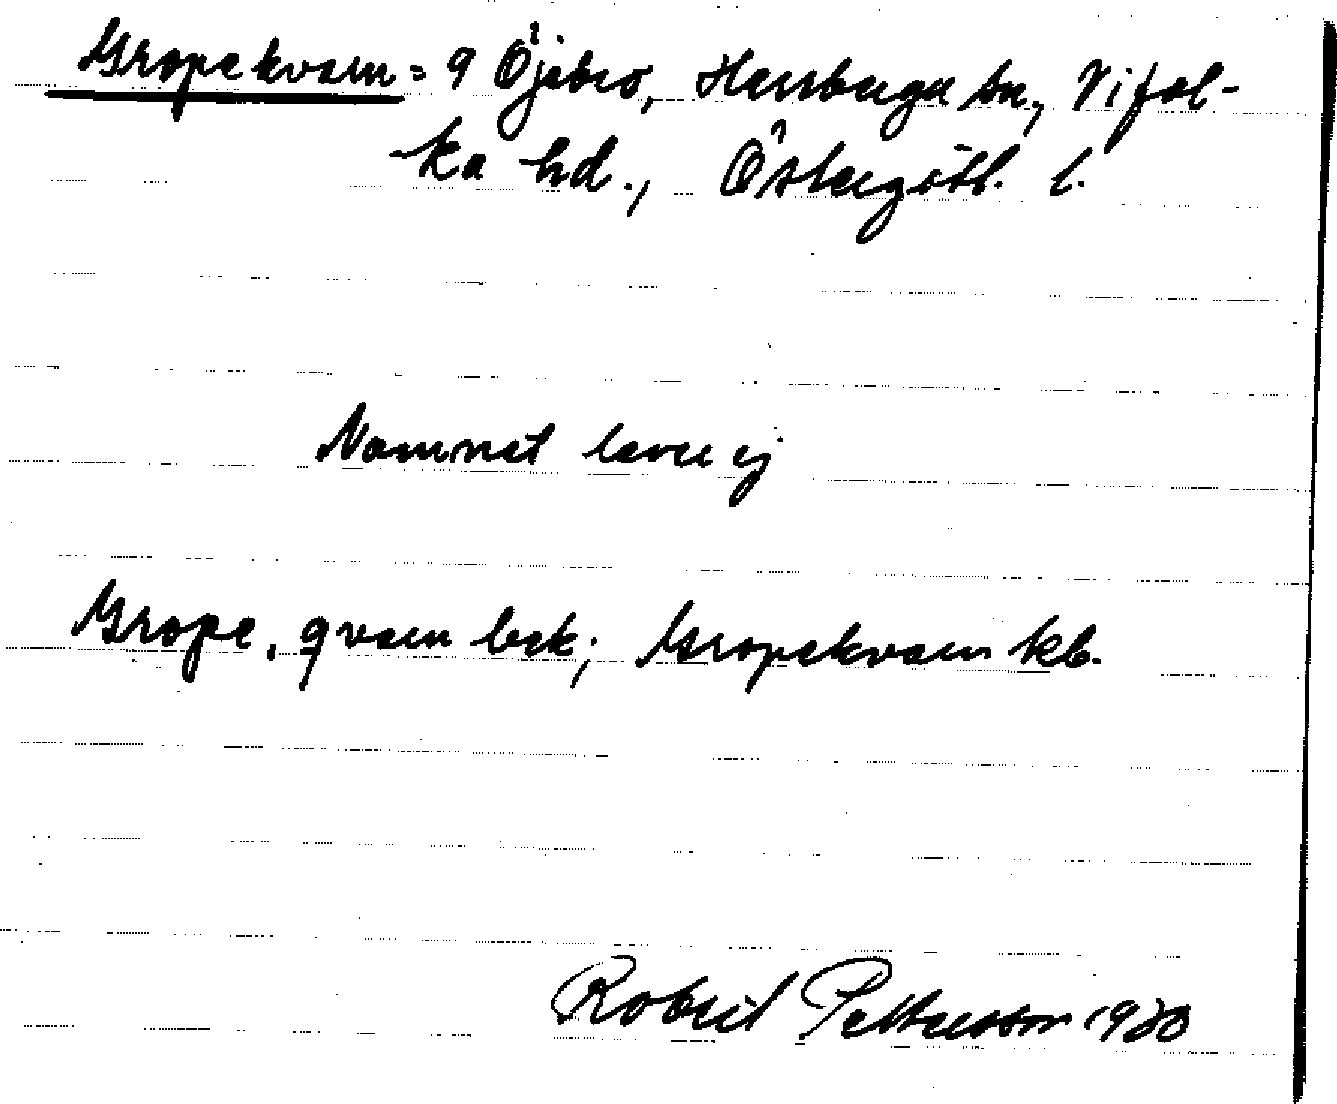 Gropekvarn = 9 Öjebro, Herrberga sn, Vifol-
ka hd., Östergötl. l.
Namnet lever ej
Grope, qvarn bek; Gropekvarn kb.
Robert Pettersson 1930